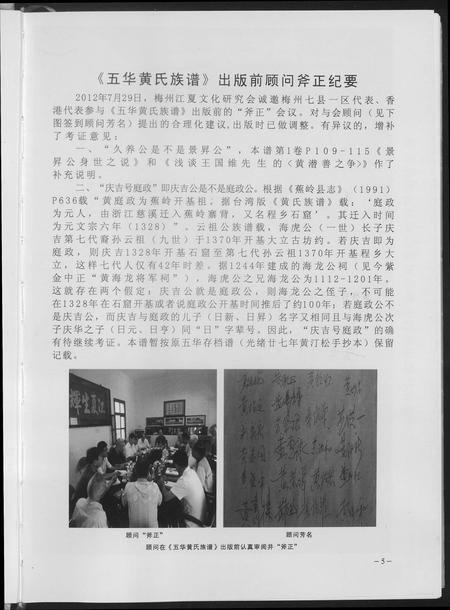 《五华黄氏族谱》出版前顾问斧正纪要
2012年7月29日，梅州江夏文化研究会诚邀梅州七县一区代表、香
港代表参与《五华黄氏族谱》出版前的“斧正”会议。对与会顾问（见下
图签到顾问芳名）提出的合理化建议，出版时已做调整。有异议的，增补
了考证意见：
一、“久养公是不是景昇公”，本谱第1卷P109-115《景
昇公身世之说》和《浅谈王国维先生的〈黄潜善之争〉》作了
补充说明。
二、“庆吉号庭政”即庆吉公是不是庭政公。根据《蕉岭县志》（1991）
P636载“黄庭政为蕉岭开基祖。据台湾版《黄氏族谱》载：‘庭政
为元人，由浙江慈溪迁入蕉岭寨背，又名程乡石窟’。其迁入时间
为元文宗六年（1328）”。云祖公族谱载，海虎公（一世）长子庆
吉第七代裔孙云祖（九世）于1370年开基大立古坊约。若庆吉即为
庭政，则庆吉1328年开基石窟至第七代孙云祖1370年开基程乡大
立，这样七代人仅有42年时差。据1244年建成的海龙公祠（见今紫
金中正“黄海龙将军祠”），海虎公之兄海龙公为1112-1201年。
这就存在两个假定：庆吉公就是庭政公，则海龙公之侄子，不可能
在1328年在石窟开基或者说庭政公开基时间推后了约100年；若庭政公不
是庆吉公，而庆吉与庭政的儿子（日新、日昇）名字又相同且与海虎公次
子庆华之子（日元、日亨）同“日”字辈号。因此，“庆吉号庭政”的确
有待继续考证。本谱暂按原五华存档谱（光绪廿七年黄汀松手抄本）保留
记载。
江夏生辉
顾问“斧正”
顾问芳名
顾问在《五华黄氏族谱》出版前认真审阅并“斧正”
-3-